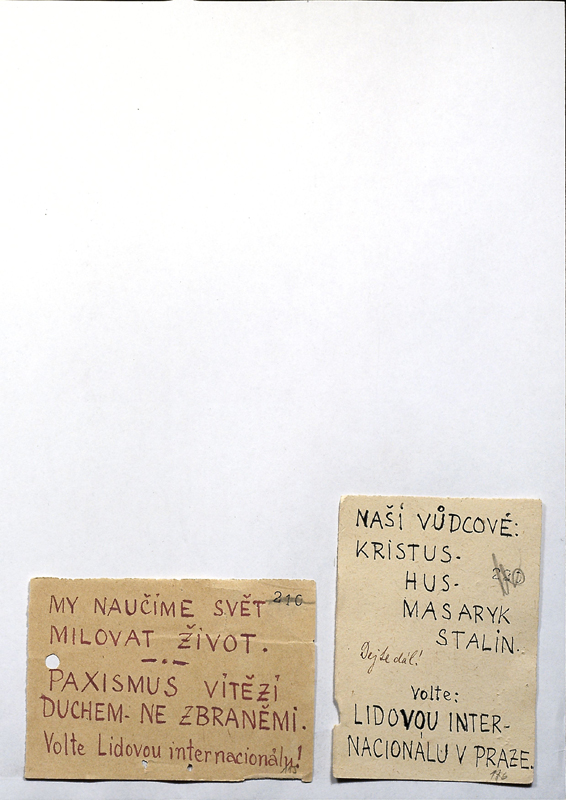 MY NAUČÍME SVĚT 216
MILOVAT ŽIVOT.
PAXISMUS VÍTĚZÍ
DUCHEM- NE ZBRANĚMI.
Volte Lidovou internacionálu!
NAŠÍ VŮDCOVÉ:
KRISTUS-
HUS-
MASARYK
STALIN.
Dejte dál!
Volte:
LIDOVOU INTER-
NACIONÁLU V PRAZE.
186